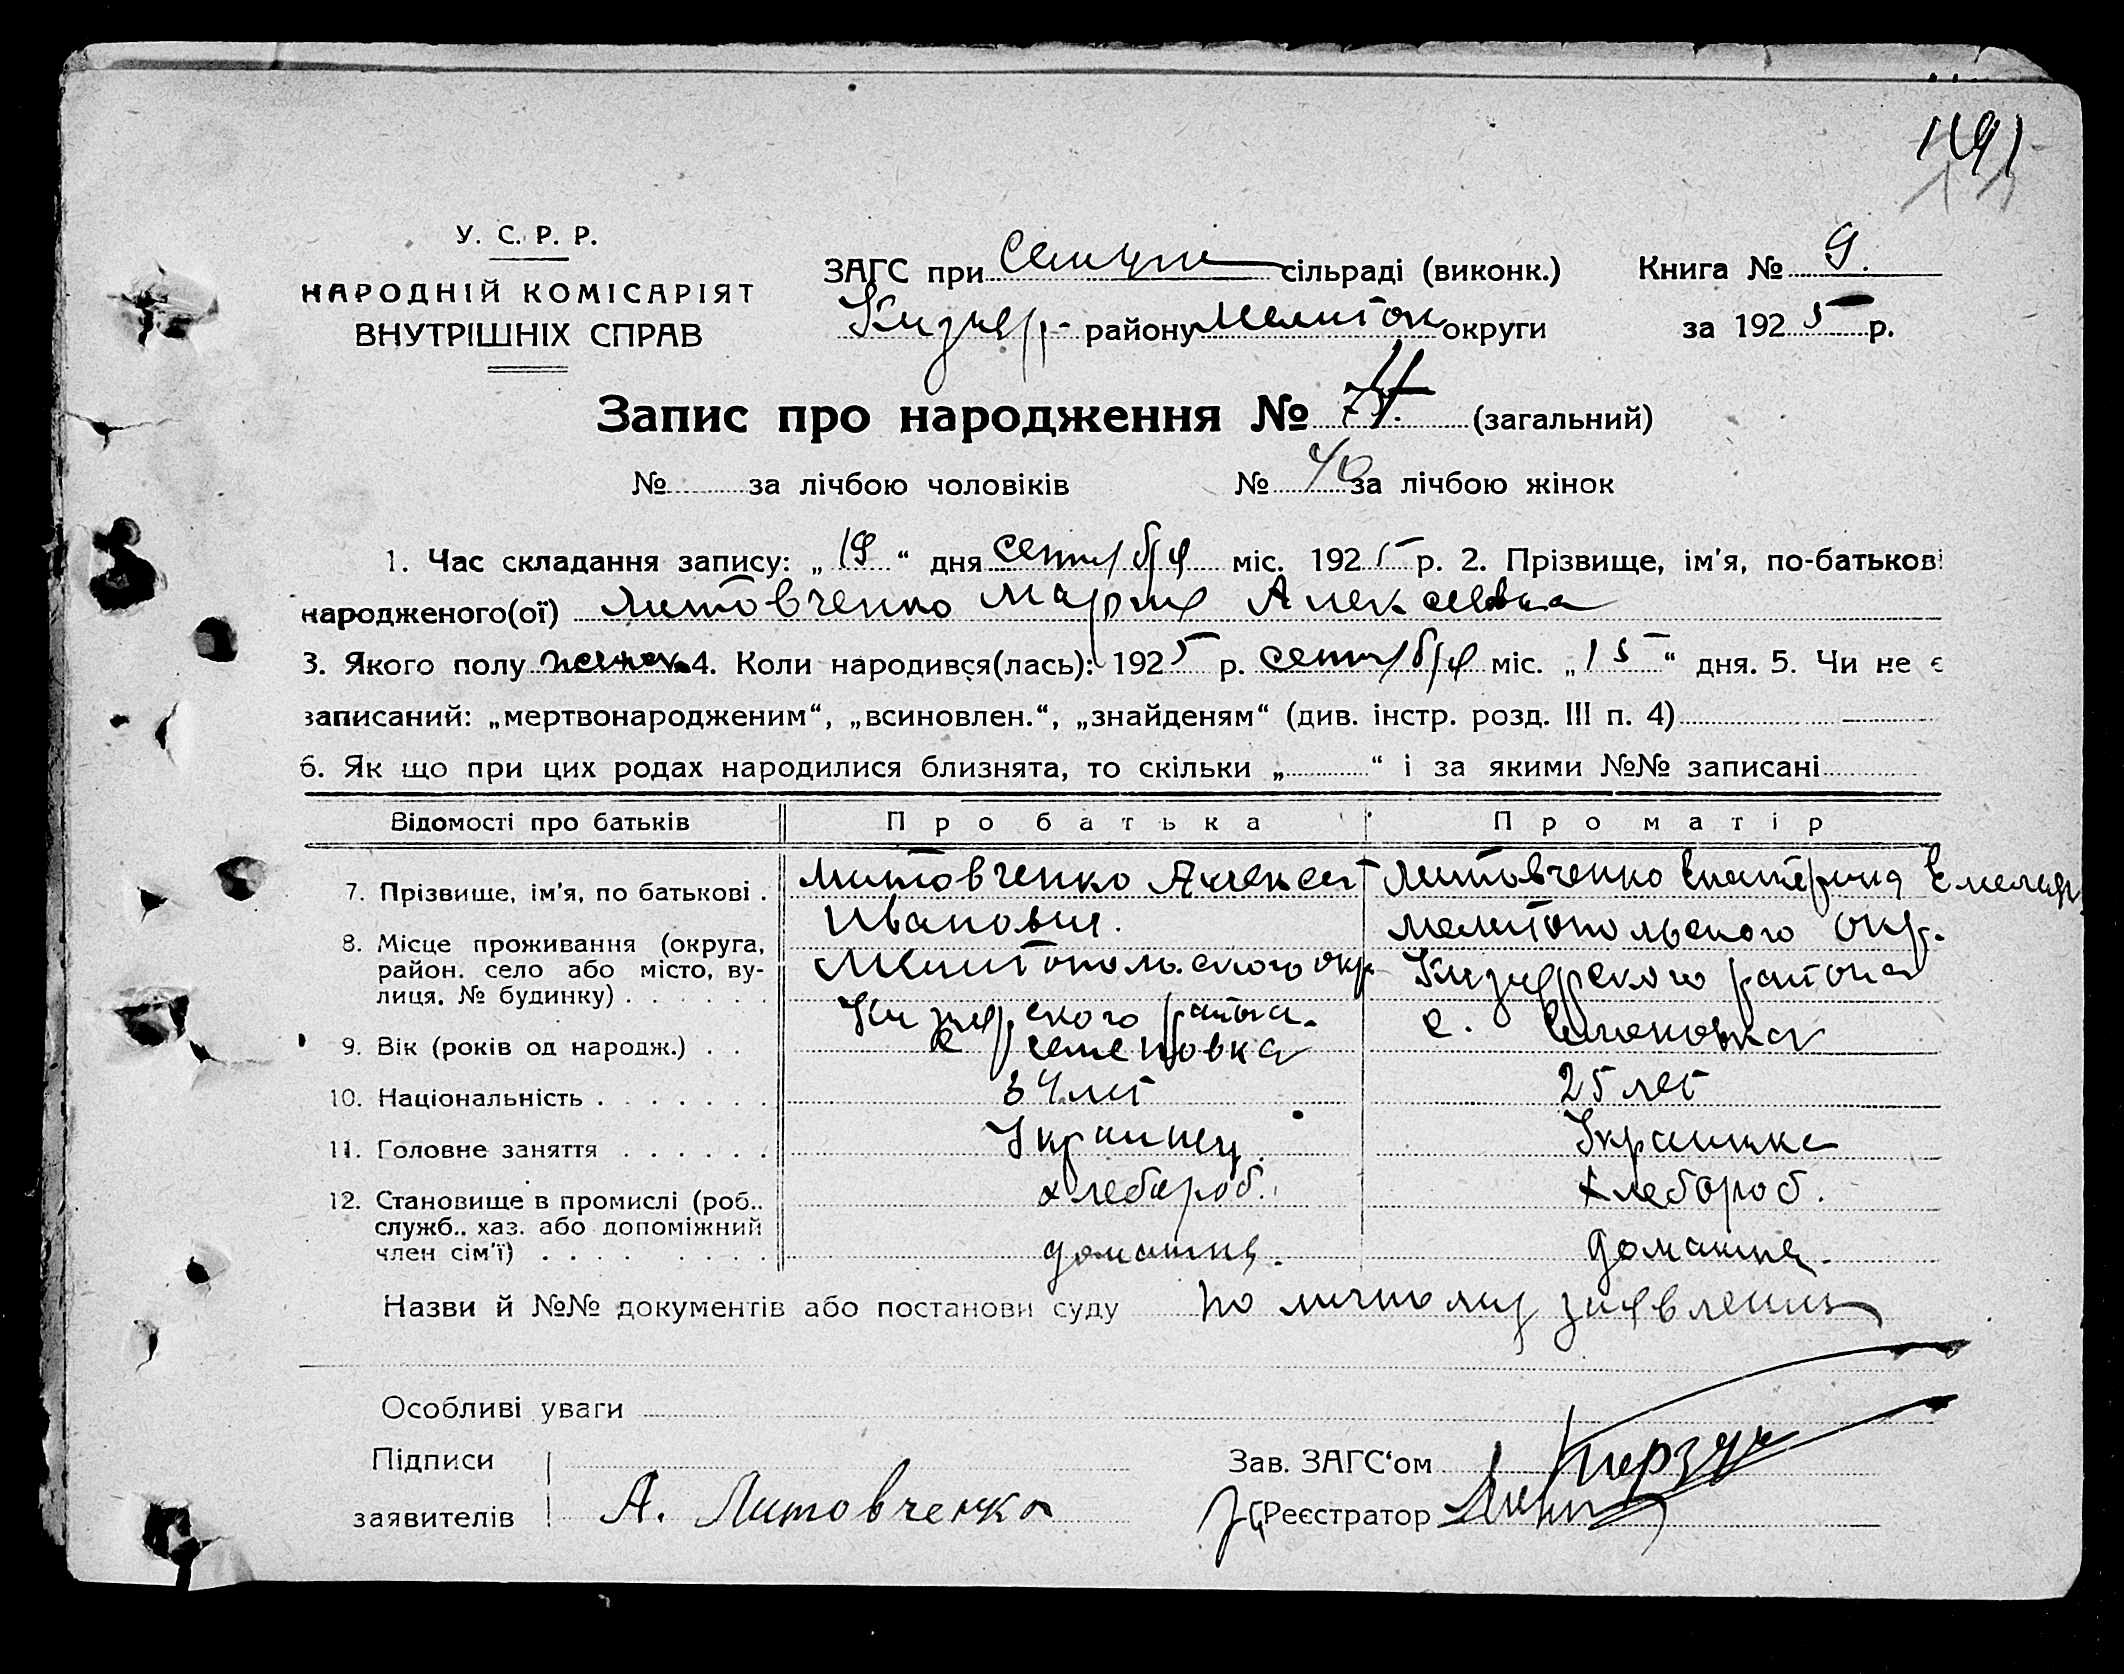 191
У. С. Р. Р.
НАРОДНІЙ КОМІСАРІЯТ
ВНУТРІШНІХ СПРАВ
ЗАГС при сільраді (виконк.)
Кизияр- району Мелитоп округи
Книга № 9.
за 1925 р.
Запис про народження № (загальний)
№ за лічбою чоловіків № 40 за лічбою жінок
1. Час складання запису: „19“ дня сентября міс. 1925 р. 2. Прізвище, ім'я, по-батькові
народженого(ої) Литовченко Мария Алексеевна
3. Якого полу женск. 4. Коли народився(лась): 1925 р. сентября міс. „15“ дня. 5. Чи не є
записаний: „мертвонародженим“, „всиновлен.“, „знайденям“ (див. інстр. розд. III п. 4)
6. Як що при цих родах народилися близнята, то скільки „ “ і за якими №№ записані
Відомості про батьків Про батька Про матір
7. Прізвище, ім'я, по батькові . Литовченко Алексей Литовченко Екатерина Емельян
Иванович.
8. Місце проживання (округа, район, село або місто, ву-
лиця, № будинку) . . . . . .
Мелитопольского окр. Мелитопольского окр.
Кизиярского района. Кизиярского района
с. Семеновка с. Семеновка
9. Вік (років од народж.) . . 34 лет 25 лет
10. Національність . . . . . . . Украинец Украинка
11. Головне заняття . . . . . . хлебороб. хлебороб.
12. Становище в промислі (роб..
служб., хаз. або допоміжний
член сім'ї) . . . . . . . . домашня. домашня.
Назви й №№ документів або постанови суду по личному заявлению
Особливі уваги
Підписи
заявителів А. Литовченко
Зав. ЗАГС'ом
За Реєстратор